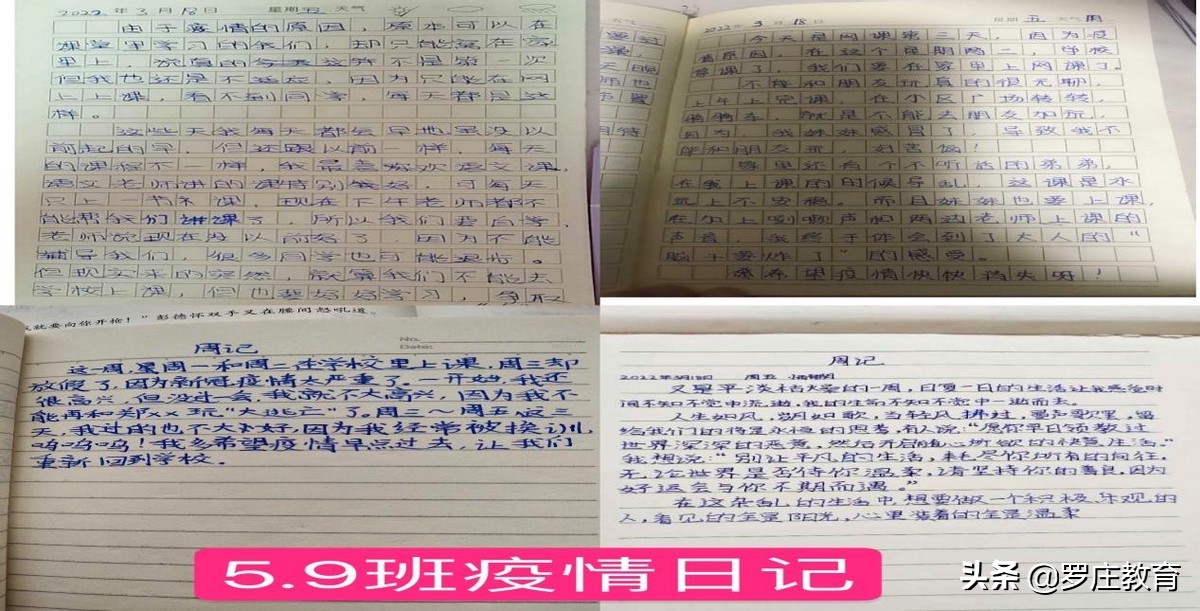 2022年3月18日 星期五 天气
由于疫情的原因，原本可以在
课堂里学习的我们，却只能窝在家
里上，放假的每天这并不是第一次
但我也还是不适应，因为只能在网
上上课，看不到同学，每天都是这
样。
这些天我每天都会早
前起的早，但还跟以前一样，每天
的课程不一样，我最喜欢语文课，
语文老师讲的课特别好，可每天
只上一节课，现在下午老师都不
能帮我们讲课了，所以我们要自学，
老师说现在没以前好了，因为不能
辅导我们，很多同学也可能
但现实来的突然，就算我们不能去
学校上课，但也要好好学习，争取
2022年3月18日 星期五 天气
今天是网课第三天，因为疫
情原因，在这个星期的周二，学校
停课了，我们要在家里上网课了。
不能和朋友玩真的很无聊，
上午上完课，在小区广场转转，
骑骑车，就是不能去朋友家玩，
因为，我妹妹感冒了，导致我不
能和朋友玩，好苦恼！
家里还有个不听话的弟弟，
在我上课的时候导乱，这课是
上不安稳。而且妹妹也要上课，
在加上声和两边老师上课的
声音，我终于体会到了大人的“
脑子要炸了”的感受。
希望疫情快快消失呀！
就要向你开枪！”彭德怀双手叉在腰间怒吼道。
No.
Date:
周记
这一周，星周一和周二在学校里上课，周三却
放假了，因为新冠疫情太严重了。一开始，我还
很高兴，但没过一会，我就不大高兴，因为我不
能再和郑××玩“大逃亡”了。周三～周五这三
天，我过的也不大好，因为我经常被挨训
呜呜呜！我多希望疫情早点过去，让我们
重新回到学校。
周记
2022年3月18日 周五 晴
又是平淡枯燥的一周，日复一日的生活让我感觉时
间不知不觉中流逝，我的生命不知不觉中一逝而去。
人生如风，岁月如歌，当轻风拂过，曼声歌里，留
给我们的将是永恒的思考，有人说：“愿你早日领教过
世界深深的恶意，然后开启随心所欲的快意生活。”
我想说：“别让平凡的生活，耗尽你所有的向往，
无论世界是否待你温柔，请坚持你的善良，因为
好运会与你不期而遇。”
在这杂乱的生活中想要做一个积极、乐观的
人，看见的全是阳光，心里装着的全是温柔
5.9班疫情日记
头条 @罗庄教育